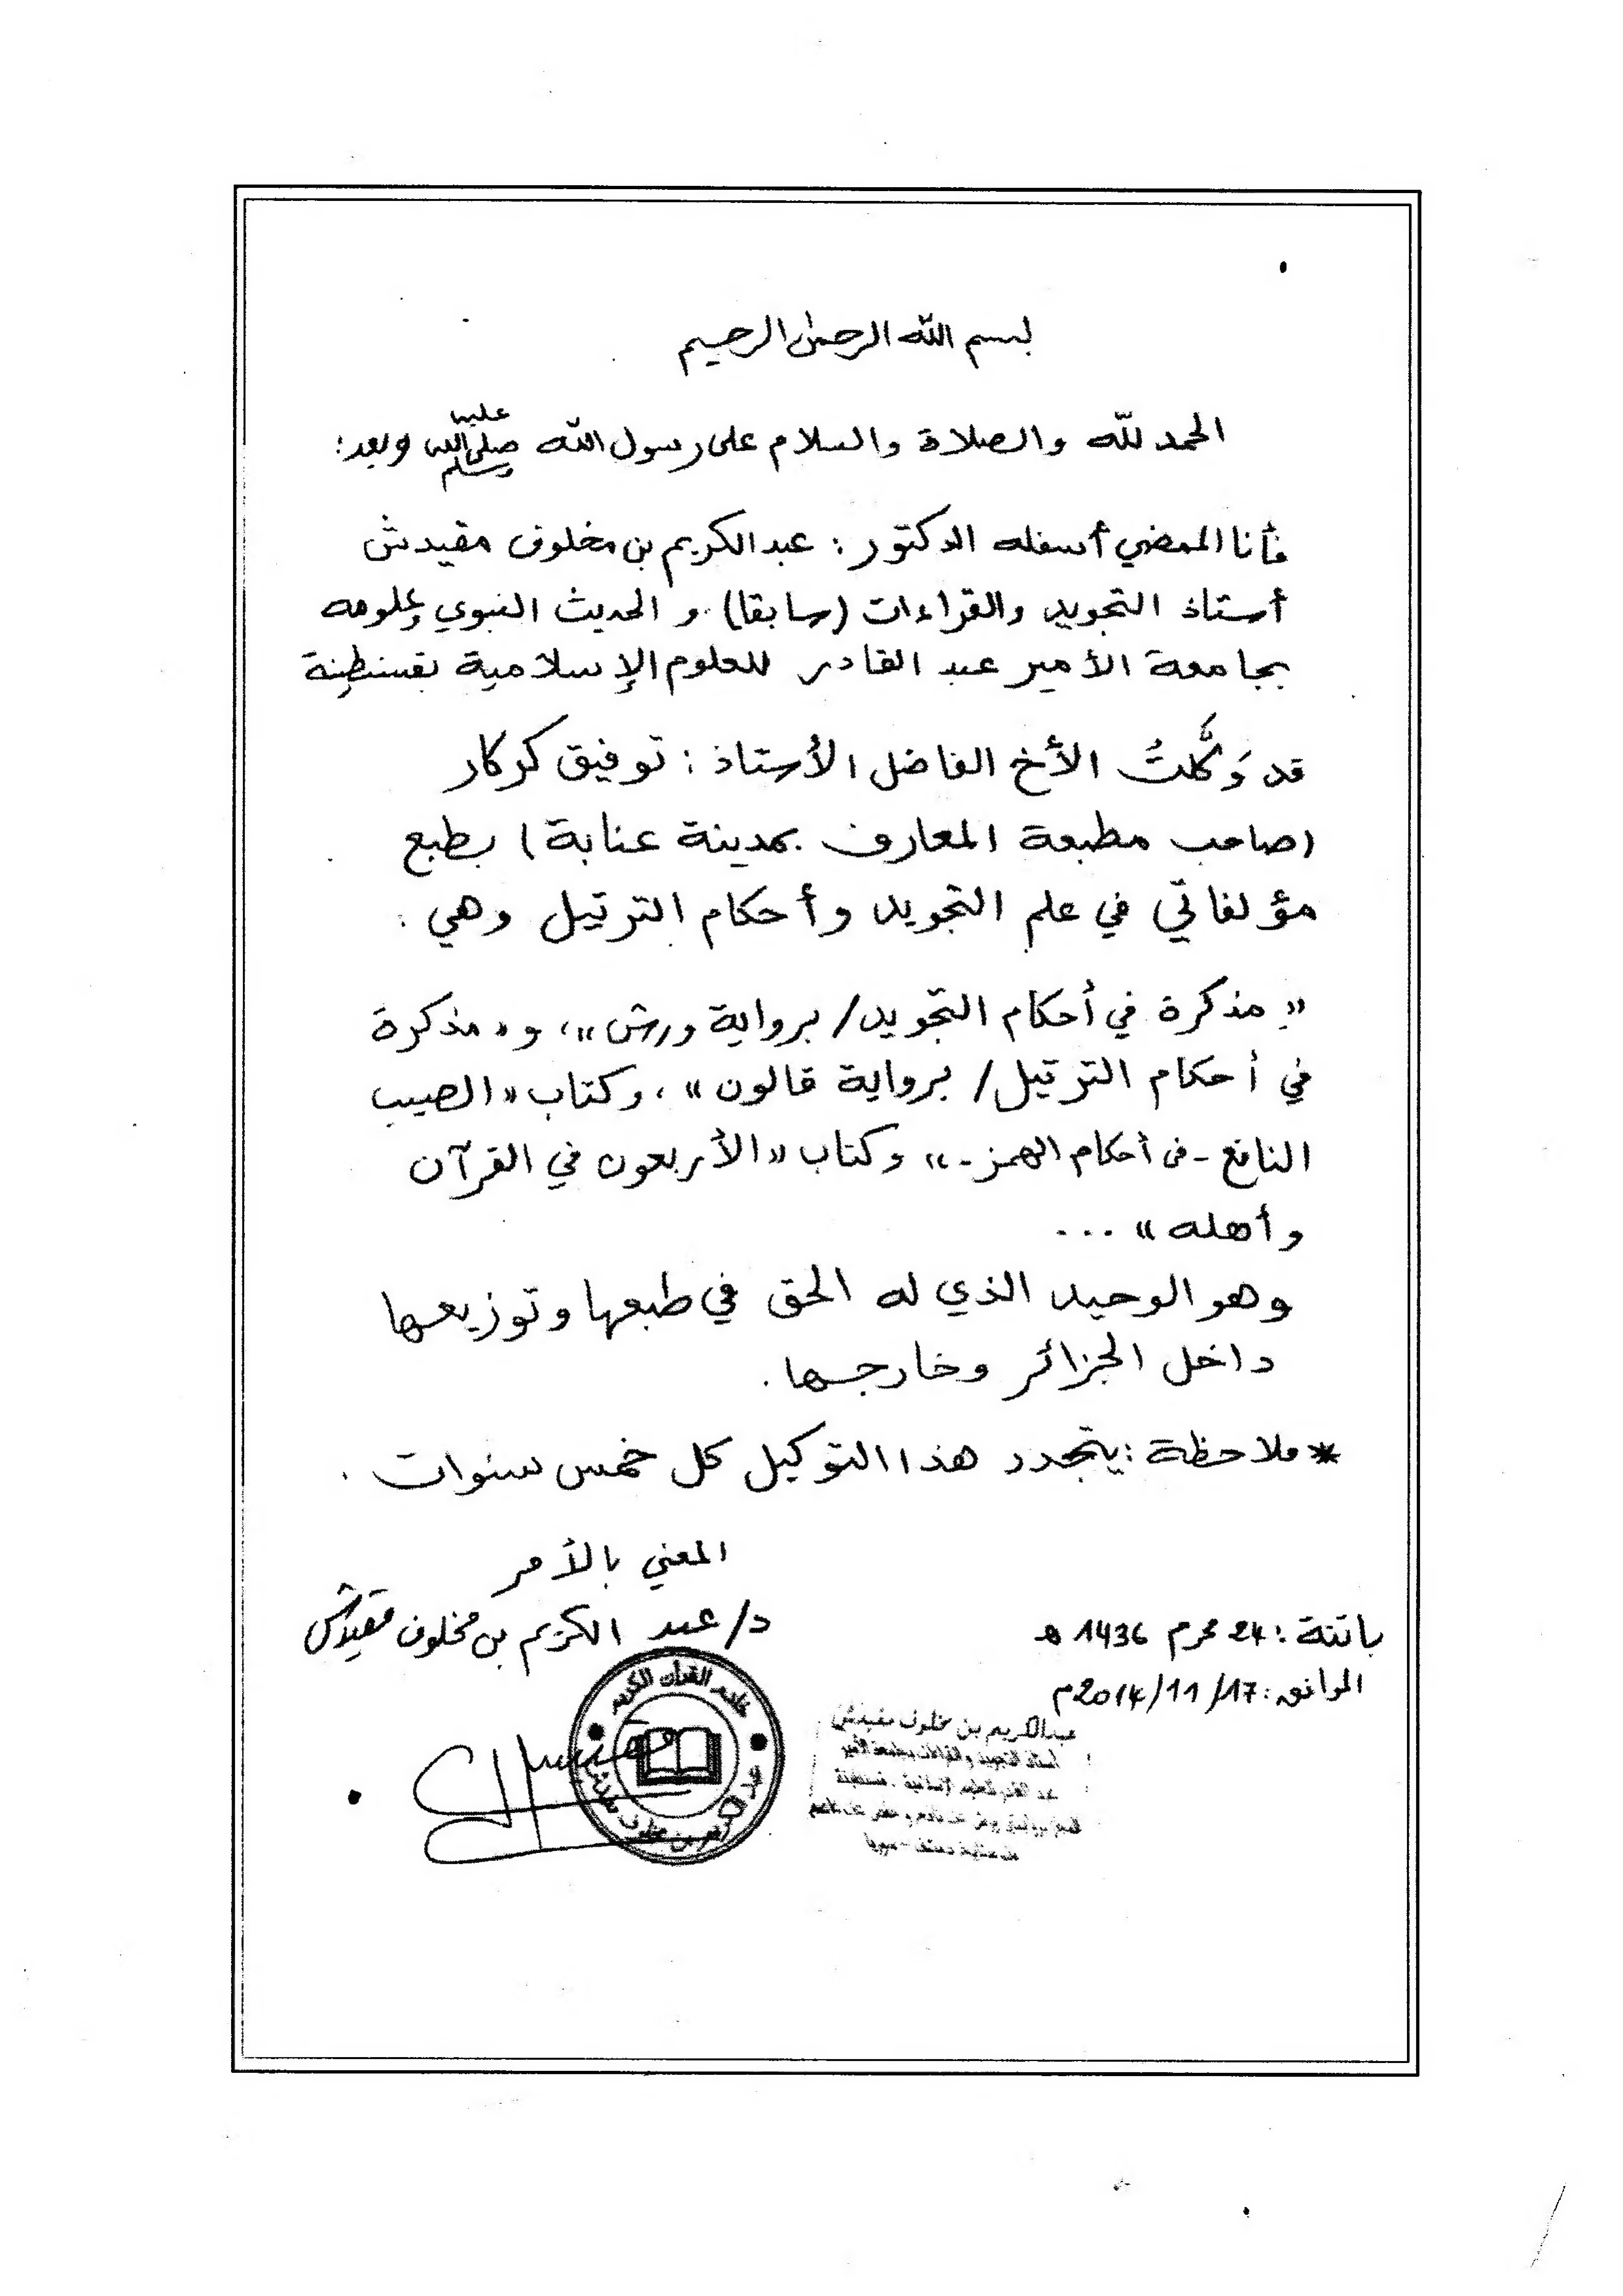 بسم الله الرحمٰن الرحيم
الحمد لله والصلاة والسلام على رسول الله صلى الله عليه وسلم وبعد:
فأنا الممضي أسفله الدكتور: عبد الكريم بن مخلوف مقيدش
أستاذ التجويد والقراءات (سابقا) و الحديث النبوي وعلومه
بجامعة الأمير عبد القادر للعلوم الإسلامية بقسنطينة
قد وَكَّلتُ الأخ الفاضل الأستاذ: توفيق كركار
(صاحب مطبعة المعارف بمدينة عنابة) بطبع
مؤلفاتي في علم التجويد وأحكام الترتيل وهي:
«مذكرة في أحكام التجويد/ برواية ورش»، و«مذكرة
في أحكام الترتيل/ برواية قالون»، وكتاب «الصيب
النافع - في أحكام الهمز -» وكتاب «الأربعون في القرآن
وأهله» ...
وهو الوحيد الذي له الحق في طبعها وتوزيعها
داخل الجزائر وخارجها.
* ملاحظة: يتجدد هذا التوكيل كل خمس سنوات.
المعني بالأمر
د/ عبد الكريم بن مخلوف مقيدش
باتنة: 24 محرم 1436 هـ
الموافق: 17/11/2014م
خادم القرآن الكريم
عبد الكريم بن مخلوف مقيدش
عبد الكريم بن مخلوف مقيدش
أستاذ التجويد والقراءات بجامعة الأمير
عبد القادر للعلوم الإسلامية - قسنطينة